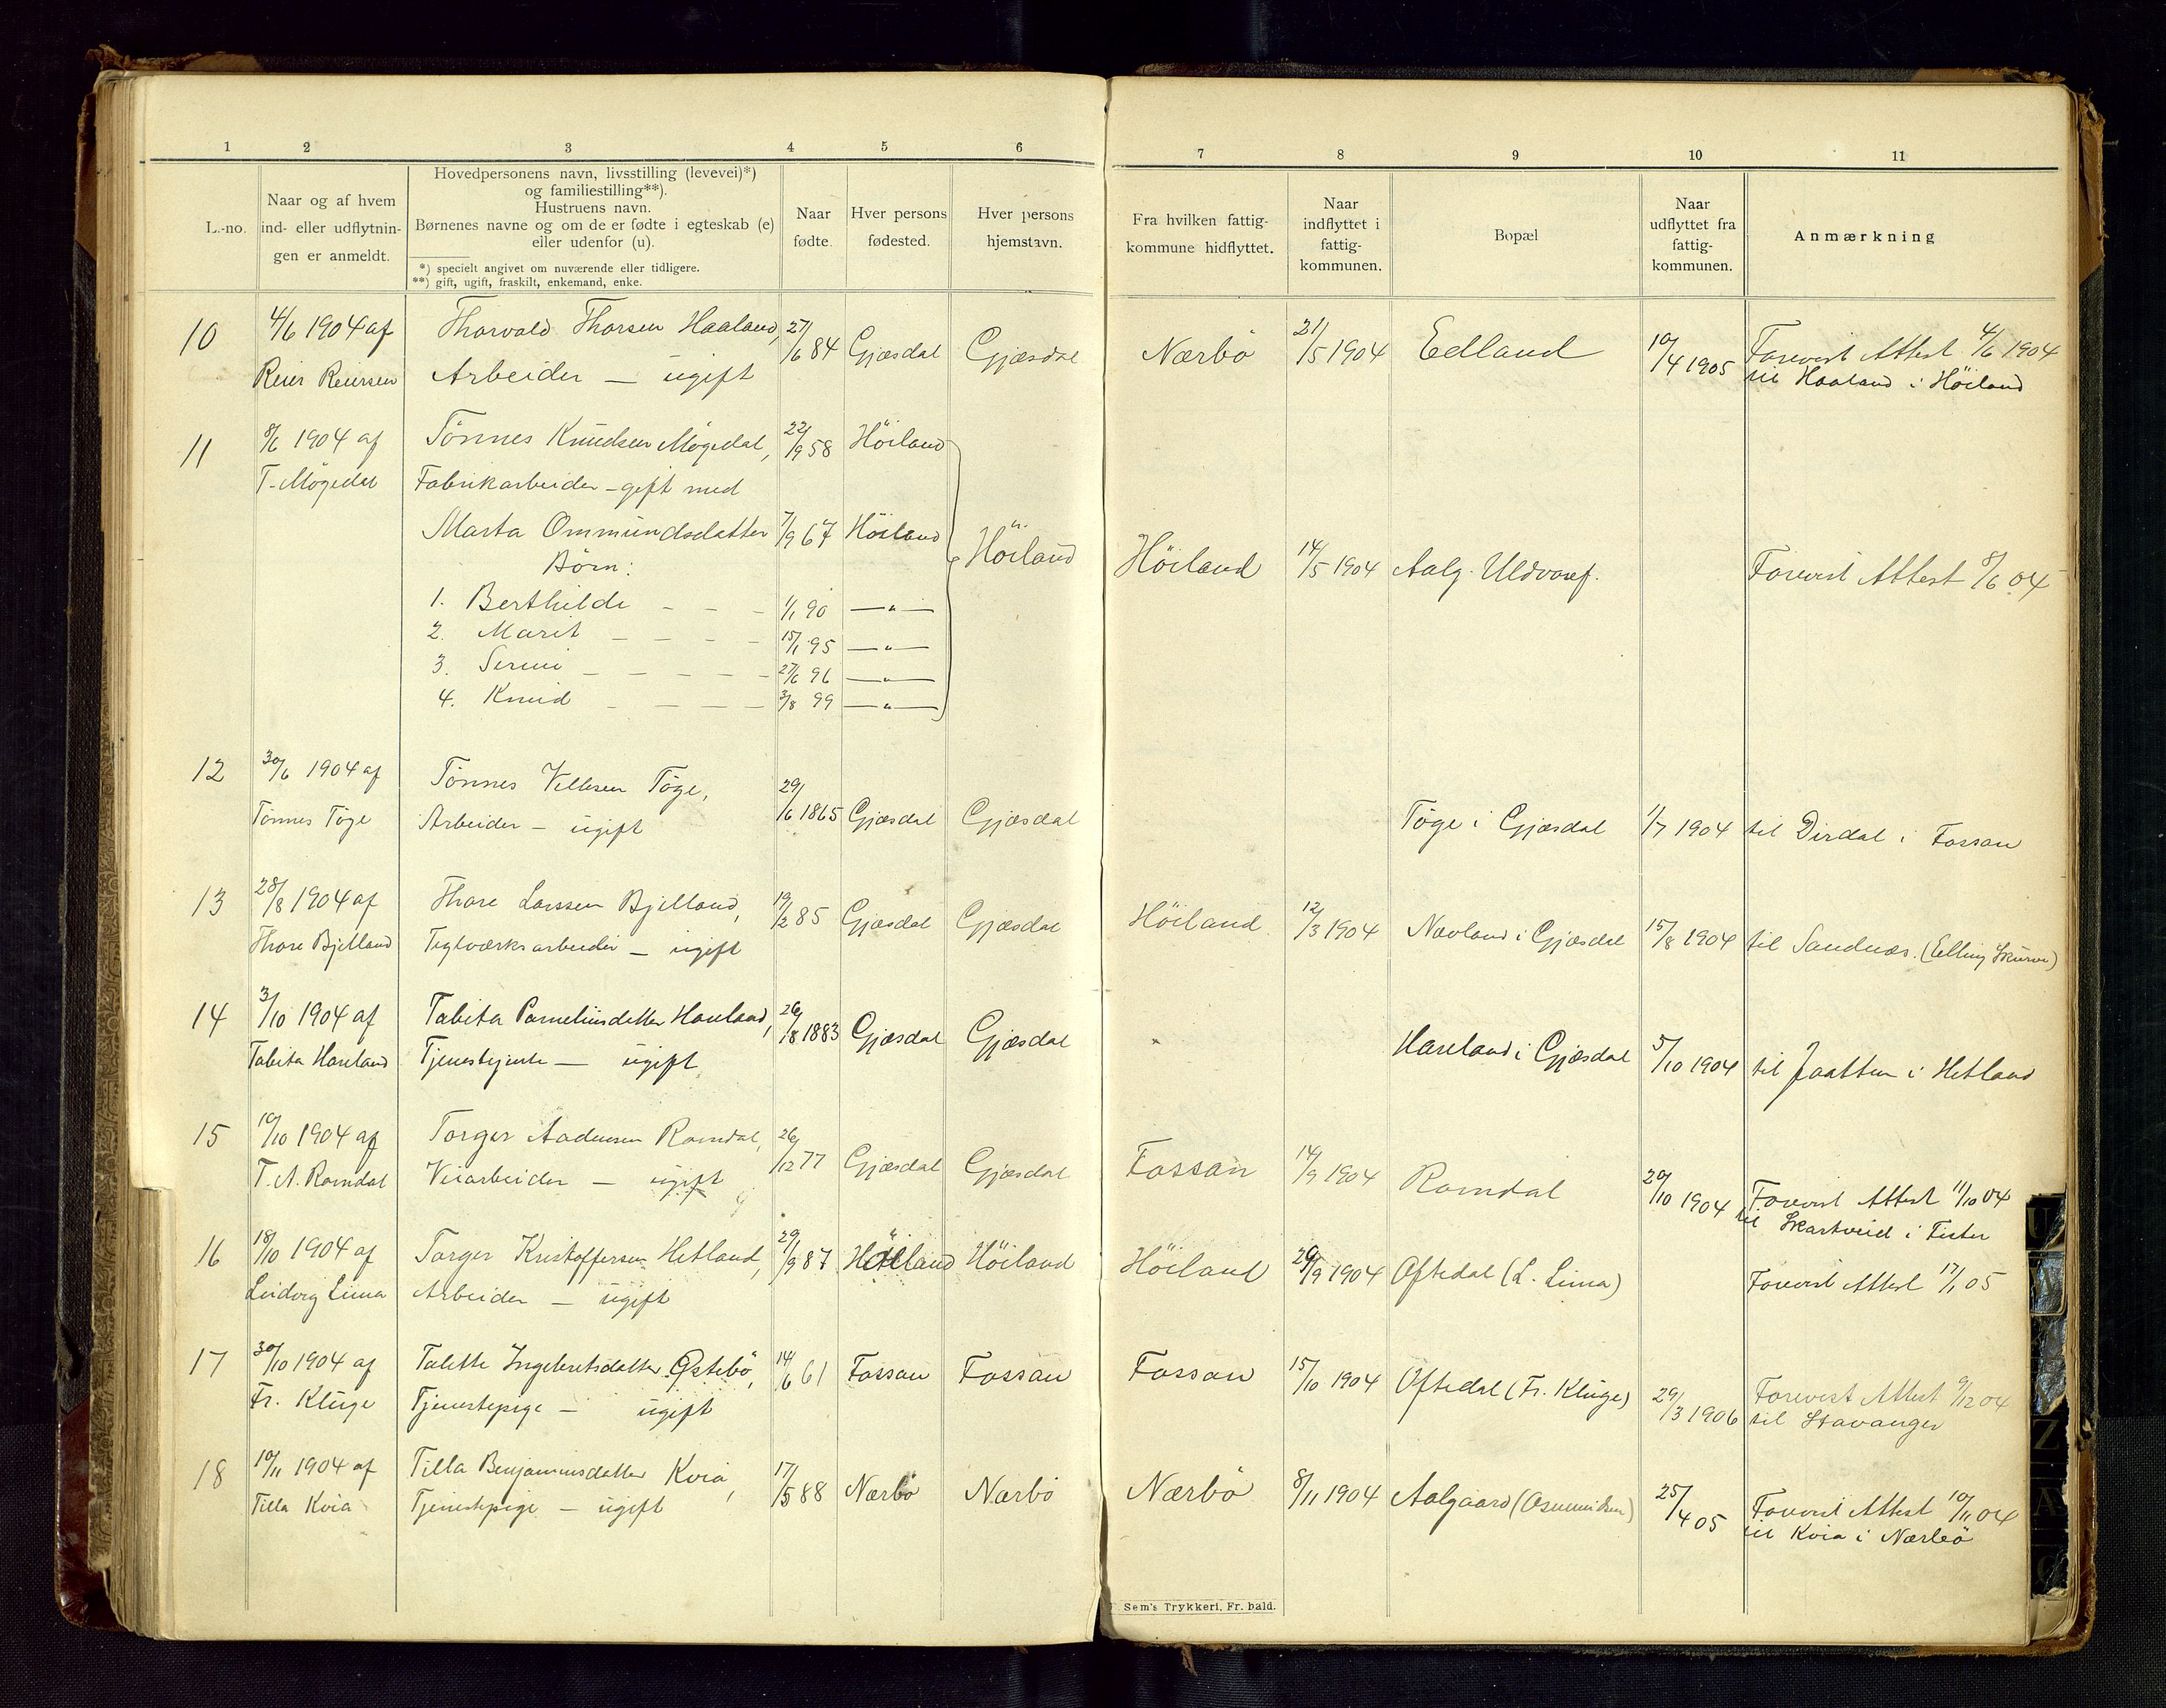 1 2 3 4 5 6 7 8 9 10 11
L.-no.
Naar og af hvem
ind- eller udflytnin-
gen er anmeldt.
Hovedpersonens navn, livsstilling (levevei)*)
og familiestilling**).
Hustruens navn.
Børnenes navne og om de er fødte i egteskab (e)
eller udenfor (u).
*) specielt angivet om nuværende eller tidligere.
**) gift, ugift, fraskilt, enkemand, enke.
Naar
fødte.
Hver persons
fødested.
Hver persons
hjemstavn.
Fra hvilken fattig-
kommune hidflyttet.
Naar
indflyttet i
fattig-
kommunen.
Bopæl
Naar
udflyttet fra
fattig-
kommunen.
Anmærkning
10 4/6 1904 af Thorvald Thorsen Haaland, 27/6 84 Gjæsdal Gjæsdal Nærbö 21/5 1904 Edland 10/4 1905 Forevist Attest 4/6 1904
Reier Reiersen Arbeider — ugift til Haaland i Höiland
11 8/6 1904 af Tönnes Knudsen Mögedal, 22/9 58 Höiland
T. Mögedal Fabrikarbeider – gift med
Marta Ommundsdatter 7/9 67 Höiland Höiland Höiland 14/5 1904 Aalg. Uldvaref. Forevist Attest 8/6 04
Börn:
1. Berthilde - - - 1/1 90 —"—
2. Marit - - - - 15/1 95 —"—
3. Serine - - - - - 27/6 96 —"—
4. Knud - - - - 3/8 99 —"—
12 30/6 1904 af Tönnes Villesen Töge, 29/6 1865 Gjæsdal Gjæsdal Töge i Gjæsdal 1/7 1904 til Dirdal i Fossan
Tönnes Töge Arbeider – ugift
13 28/8 1904 af Thore Larssen Bjelland, 19/2 85 Gjæsdal Gjæsdal Höiland 12/3 1904 Nævland i Gjæsdal 15/8 1904 til Sandnæs. (Elling Skurve)
Thore Bjelland Teglværksarbeider – ugift
14 3/10 1904 af Tabita Parneliusdatter Haveland, 26/8 1883 Gjæsdal Gjæsdal Haveland i Gjæsdal 5/10 1904 til Jaatten i Hetland
Tabita Haveland Tjenestejente — ugift
15 10/10 1904 af Torger Aadnesen Ramdal, 26/12 77 Gjæsdal Gjæsdal Fossan 14/9 1904 Ramdal 20/10 1904 Forevist Attest 11/10 04
T. A. Ramdal Veiarbeider — ugift til Skartveid i Fister
16 18/10 1904 af Torger Kristoffersen Hetland, 29/9 87 Höiland Höiland Höiland 29/9 1904 Oftedal (L. Lima) Forevist Attest 17/1 05
Ludvig Lima Arbeider — ugift
17 30/10 1904 af Talette Ingebretsdatter Østebö, 14/6 61 Fossan Fossan Fossan 15/10 1904 Oftedal (Fr. Kluge) 29/3 1906 Forevist Attest 9/12 04
Fr. Kluge Tjenestepige – ugift til Stavanger
18 10/11 1904 af Tilla Benjaminsdatter Kvia, 17/5 88 Nærbö Nærbö Nærbö 8/11 1904 Aalgaard (Osmundsen) 25/4 05 Forevist Attest 10/11 04
Tilla Kvia Tjenestepige – ugift til Kvia i Nærbö
Sem's Trykkeri, Fr. hald.